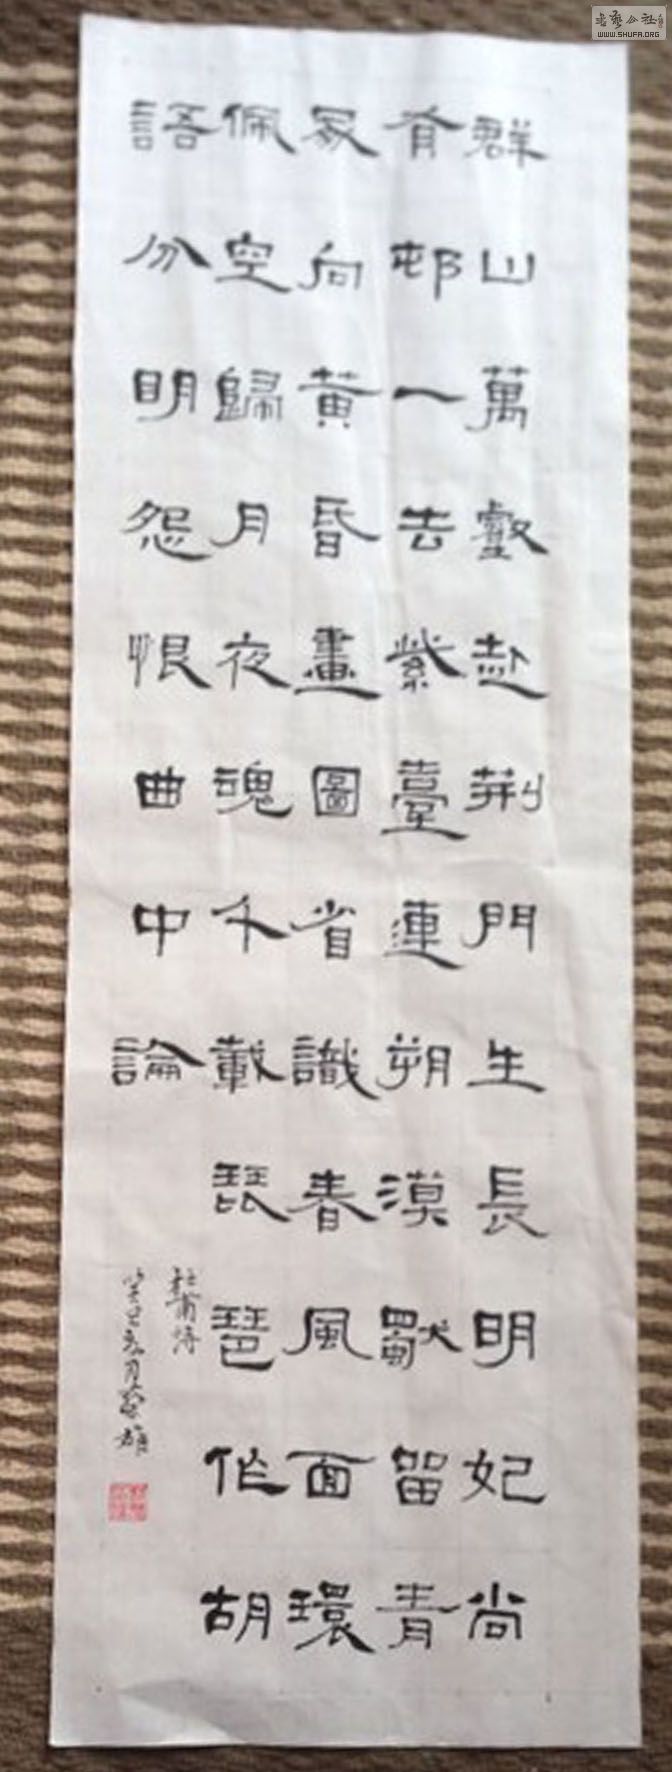 群山萬壑赴荊門生長明妃尚
有邨一去紫臺連朔漠獨留青
冢向黃昏畫圖省識春風面環
佩空歸月夜魂千載琵琶作胡
語分明怨恨曲中論
杜甫詩
癸巳
WWW.SHUFA.ORG